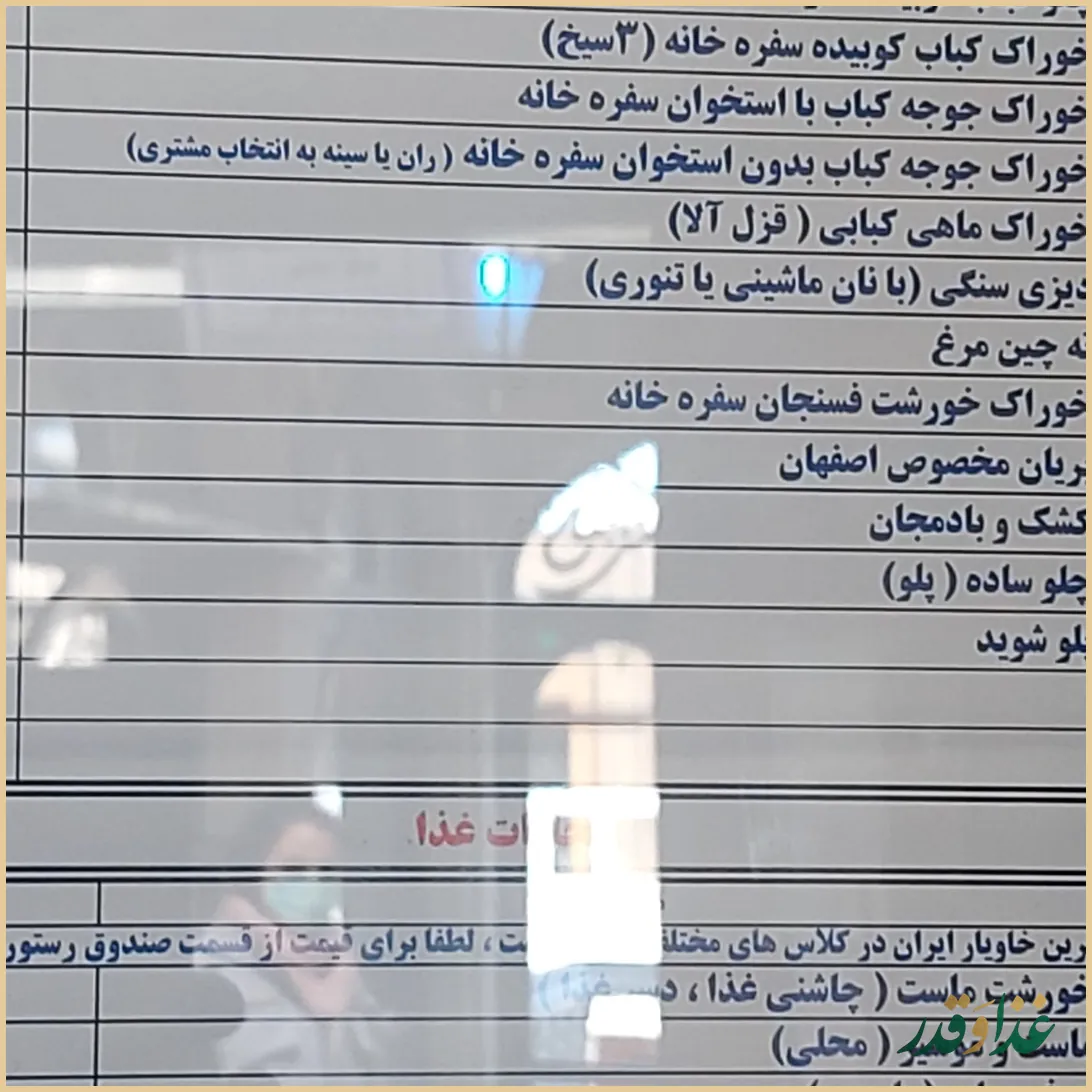 خوراک کباب کوبیده سفره خانه (۳سیخ)
خوراک جوجه کباب با استخوان سفره خانه
خوراک جوجه کباب بدون استخوان سفره خانه ( ران یا سینه به انتخاب مشتری)
خوراک ماهی کبابی ( قزل آلا)
دیزی سنگی (با نان ماشینی یا تنوری)
ته چین مرغ
خوراک خورشت فسنجان سفره خانه
بریان مخصوص اصفهان
کشک و بادمجان
چلو ساده ( پلو)
پلو شوید
غذا
خاویار ایران در کلاس های ، لطفا برای قیمت از قسمت صندوق
خورشت ماست ( چاشنی غذا ، دسر غذا )
ماست و موسیر ( محلی)
غذا و قدر